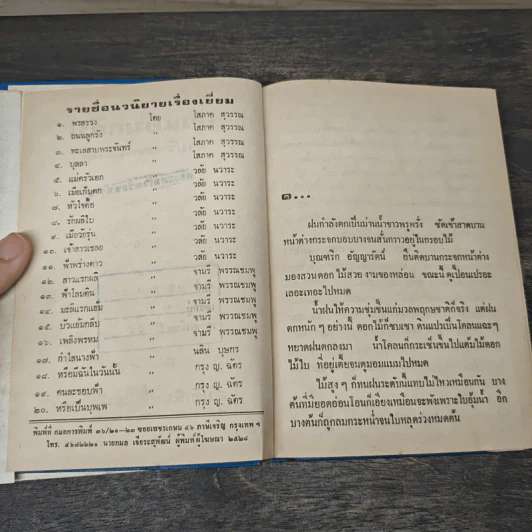 รายชื่อนวนิยายเรื่องเยี่ยม
๑. พรสรวง โดย โสภาค สุวรรณ
๒. ถนนลูกรัง " โสภาค สุวรรณ
๓. ทะเลสาบพระจันทร์ " โสภาค สุวรรณ
๔. บุลลา " โสภาค สุวรรณ
๕. แม่ครัวเอก " วลัย นวาระ
๖. เมื่อเก็บุ่ตก " วลัย นวาระ
๗. หัวใจคือ " วลัย นวาระ
๘. รักผลิใบ " วลัย นวาระ
๙. เมื่อวัยรุ่น " วลัย นวาระ
๑๐. เจ้าสาวเชลย " วลัย นวาระ
๑๑. ฟ้าพร่างดาว " วลัย นวาระ
๑๒. สาวแรกผลิ " จามรี พรรณชมพู
๑๓. ฟ้าโลมดิน " จามรี พรรณชมพู
๑๔. มะลิแรกแย้ม " จามรี พรรณชมพู
๑๕. บัวแย้มกลีบ " จามรี พรรณชมพู
๑๖. เพลิงพรหม " จามรี พรรณชมพู
๑๗. กำไลนางฟ้า " นลิน บุษกร
๑๘. หรือมีฉันในวันนั้น " กรุง ญ. ฉัตร
๑๙. คนละขอบฟ้า " กรุง ญ. ฉัตร
๒๐. หรือเป็นบุพเพ " กรุง ญ. ฉัตร
พิมพ์ที่ กมลการพิมพ์ ๓๖/๒๑-๒๓ ซอยเพชรเกษม ๔๖ ภาษีเจริญ กรุงเทพ ฯ
โทร. ๔๖๗๒๒๒๑ นายกมล เจียระสุพัฒน์ ผู้พิมพ์ผู้โฆษณา ๒๕๒๘
๑...
ฝนกำลังตกเป็นม่านน้ำขาวพรูพรั่ง ซัดเข้าสาดบาน
หน้าต่างกระจกบอบบางจนสั่นกราวอยู่ในกรอบไม้
บุณฑริก อัญญารัตน์ ยืนติดบานกระจกหน้าต่าง
มองสวนดอกไม้สวยงามของหล่อน ขณะนี้ดูเปื้อนเปรอะ
เลอะเทอะไปหมด
น้ำฝนให้ความชุ่มชื้นแก่มวลพฤกษชาติก็จริง แต่ฝน
ตกหนัก ๆ อย่างนี้ ดอกไม้ก็ซบเซา ดินแปรเป็นโคลนแฉะ ๆ
หยาดฝนตกลงมา น้ำโคลนก็กระเซ็นขึ้นไปแต้มไม้ดอก
ไม้ใบ ที่อยู่เตี้ยจนดูมอมแมมไปหมด
ไม้สูง ๆ ก็ทนฝนระดับนี้แทบไม่ไหวเหมือนกัน บาง
ต้นที่มียอดอ่อนโอนก็เอียงเหมือนจะพังเพราะใบอุ้มน้ำ อีก
บางต้นก็ถูกลมกระหน่ำจนใบหลุดร่วงหมดต้น